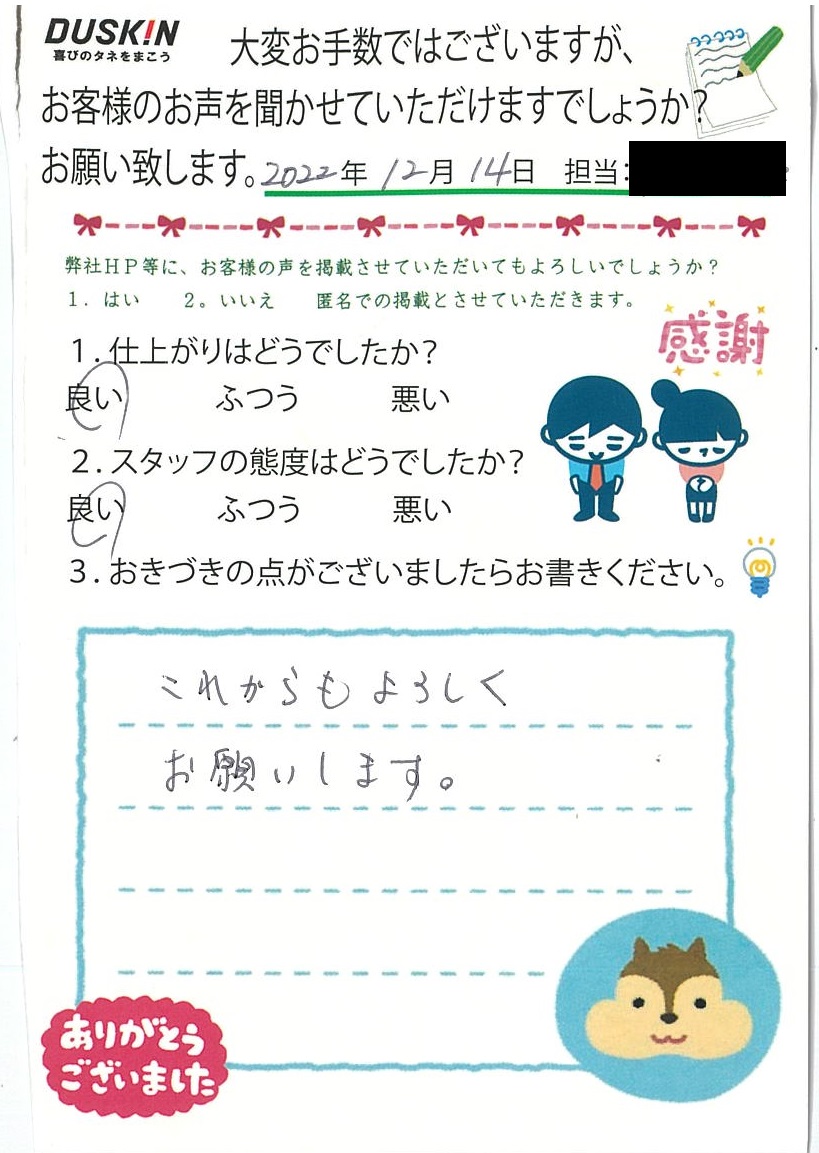 DUSKIN
喜びのタネをまこう
大変お手数ではございますが、
お客様のお声を聞かせていただけますでしょうか?
お願い致します。2022年 12月 14日 担当:
弊社HP等に、お客様の声を掲載させていただいてもよろしいでしょうか?
1. はい 2。いいえ 匿名での掲載とさせていただきます。
感謝
1.仕上がりはどうでしたか?
良い ふつう 悪い
2.スタッフの態度はどうでしたか?
良い ふつう 悪い
3.おきづきの点がございましたらお書きください。
これからもよろしく
お願いします。
ありがとう
ございました